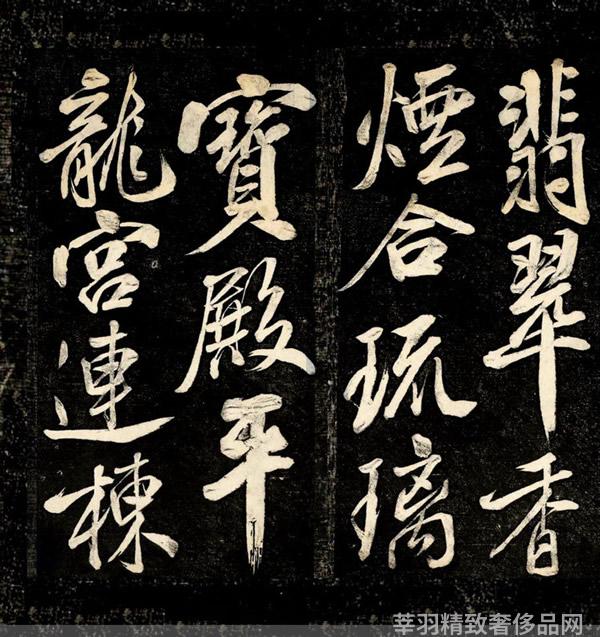 翡翠香
煙合琉璃
寶殿平
龍宮連棟
莘羽精致奢侈品网